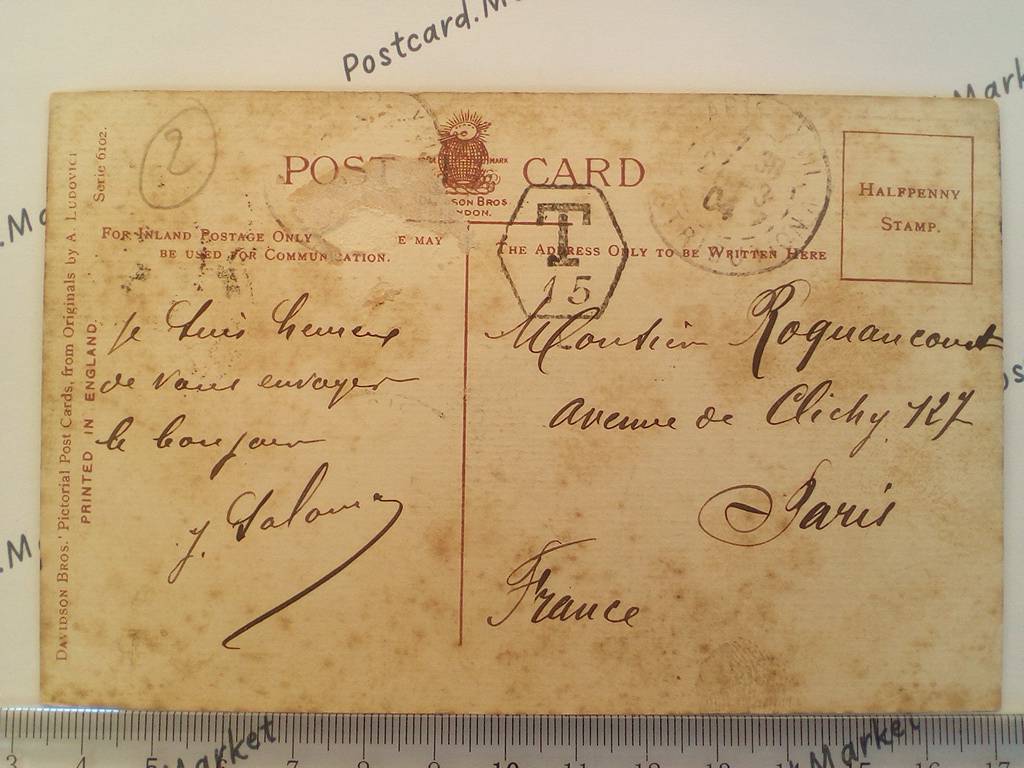 Postcard.M
Market
POST CARD
MARK
SON BROS
NDON.
2
Serie 6102.
DAVIDSON BROS.' Pictorial Post Cards, from Originals by A. LUDOVICI
PRINTED IN ENGLAND.
FOR INLAND POSTAGE ONLY E MAY
BE USED FOR COMMUN CATION.
THE ADDRESS ONLY TO BE WRITTEN HERE
T
15
04
HALFPENNY
STAMP.
je suis heureux
de vous envoyer
le bonjour
Monsieur Roquancourt
avenue de Clichy 127
Paris
France
3 4 5 6 7 8 9 10 11 12 13 14 15 16 17
Market
Market